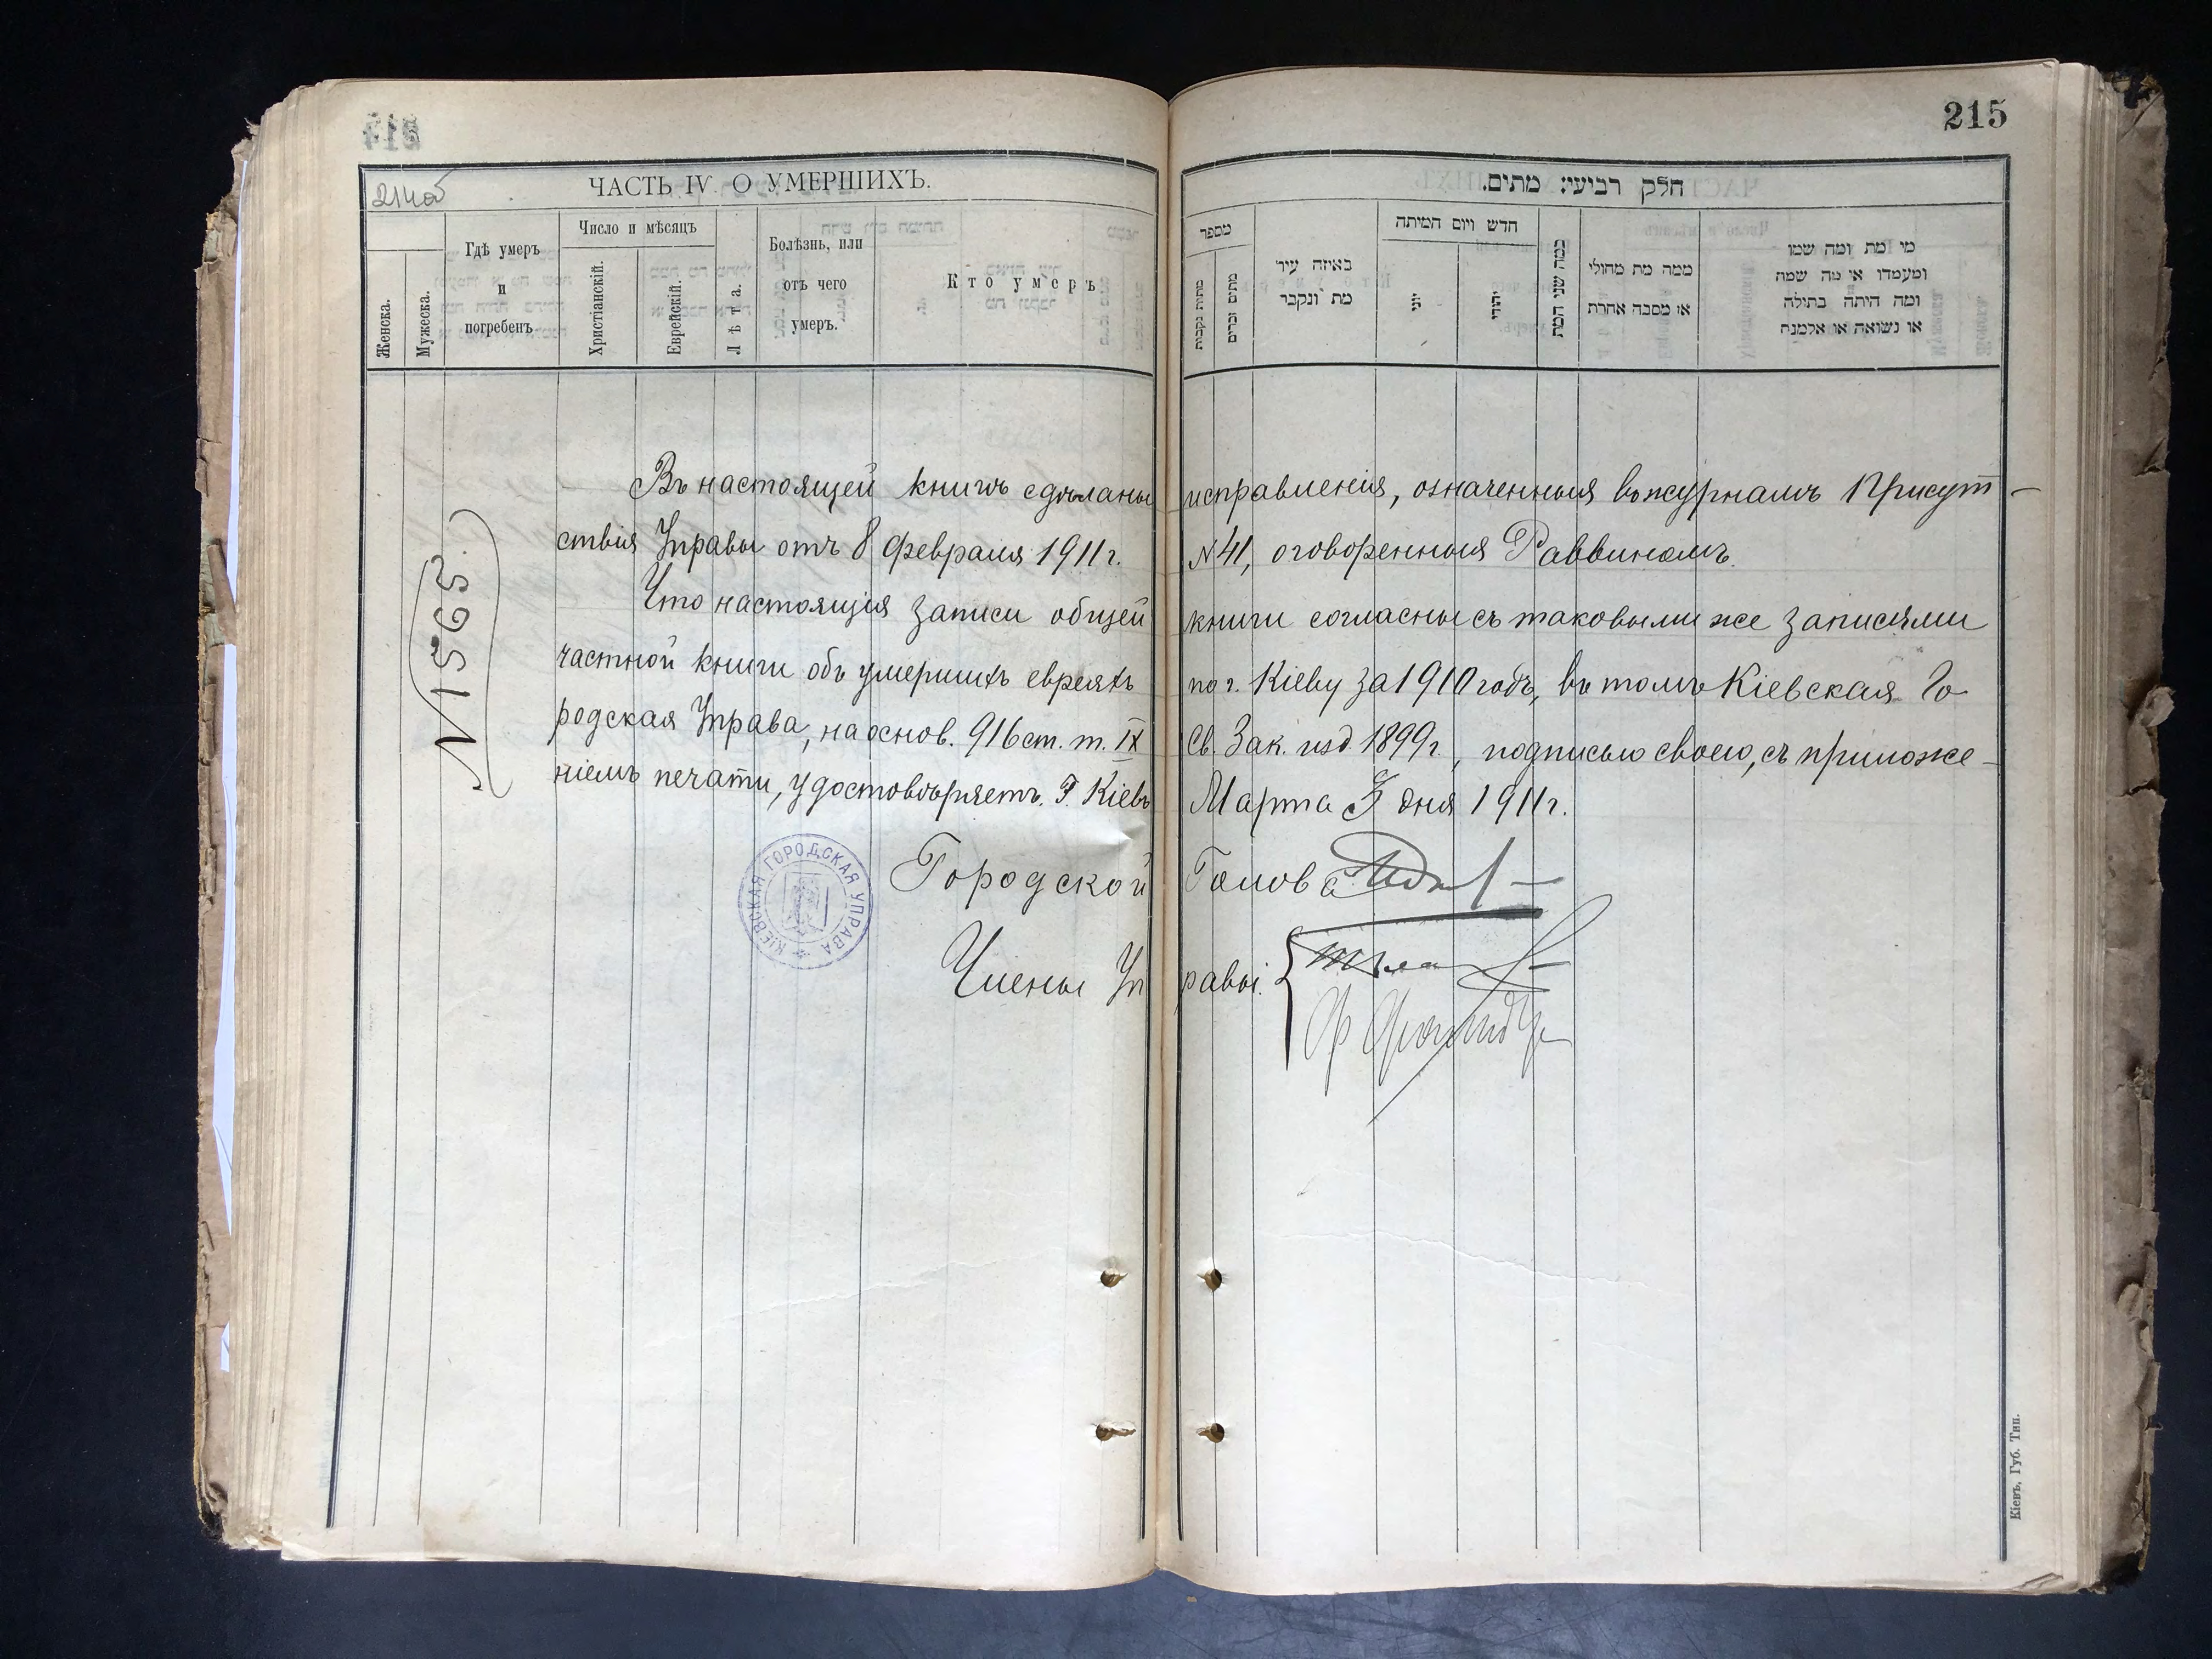 215
214об
ЧАСТЬ IV. О УМЕРШИХЪ.
Женска.
Мужеска.
Гдѣ умеръ
и
погребенъ
Число и мѣсяцъ
Христіанскій.
Еврейскій.
Лѣта.
Болѣзнь, или
отъ чего
умеръ.
Кто умеръ
חלק רביעי: מתים.
מספר
מתות נקבות
מתים זכרים
באיזה עיר
מת ונקבר
חדש ויום המיתה
יוני
יהודי
כמה שני המת
ממה מת מחולי
או מסבה אחרת
מי מת ומה שמו
ומעמדו או מה שמה
ומה היתה בתולה
או נשואה או אלמנה
N 1565.
Въ настоящей книгѣ сдѣланы исправленія, означенныя въ журналѣ Присут-
ствія Управы отъ 8 февраля 1911 г. N 41, оговоренныя Раввиномъ.
Что настоящія записи общей книги согласны съ таковыми же записями
частной книги объ умершихъ евреяхъ по г. Кіеву за 1910 годъ, въ томъ Кіевская Го
родская Управа, на основ. 916 ст. т. IX Св. Зак. изд. 1899 г., подписью своею, съ приложе-
ніемъ печати, удостовѣряетъ. Г. Кіевъ Марта дня 1911 г.
Городской Голова
Члены Управы.
КІЕВСКАЯ ГОРОДСКАЯ УПРАВА
Кіевъ, Губ. Тип.